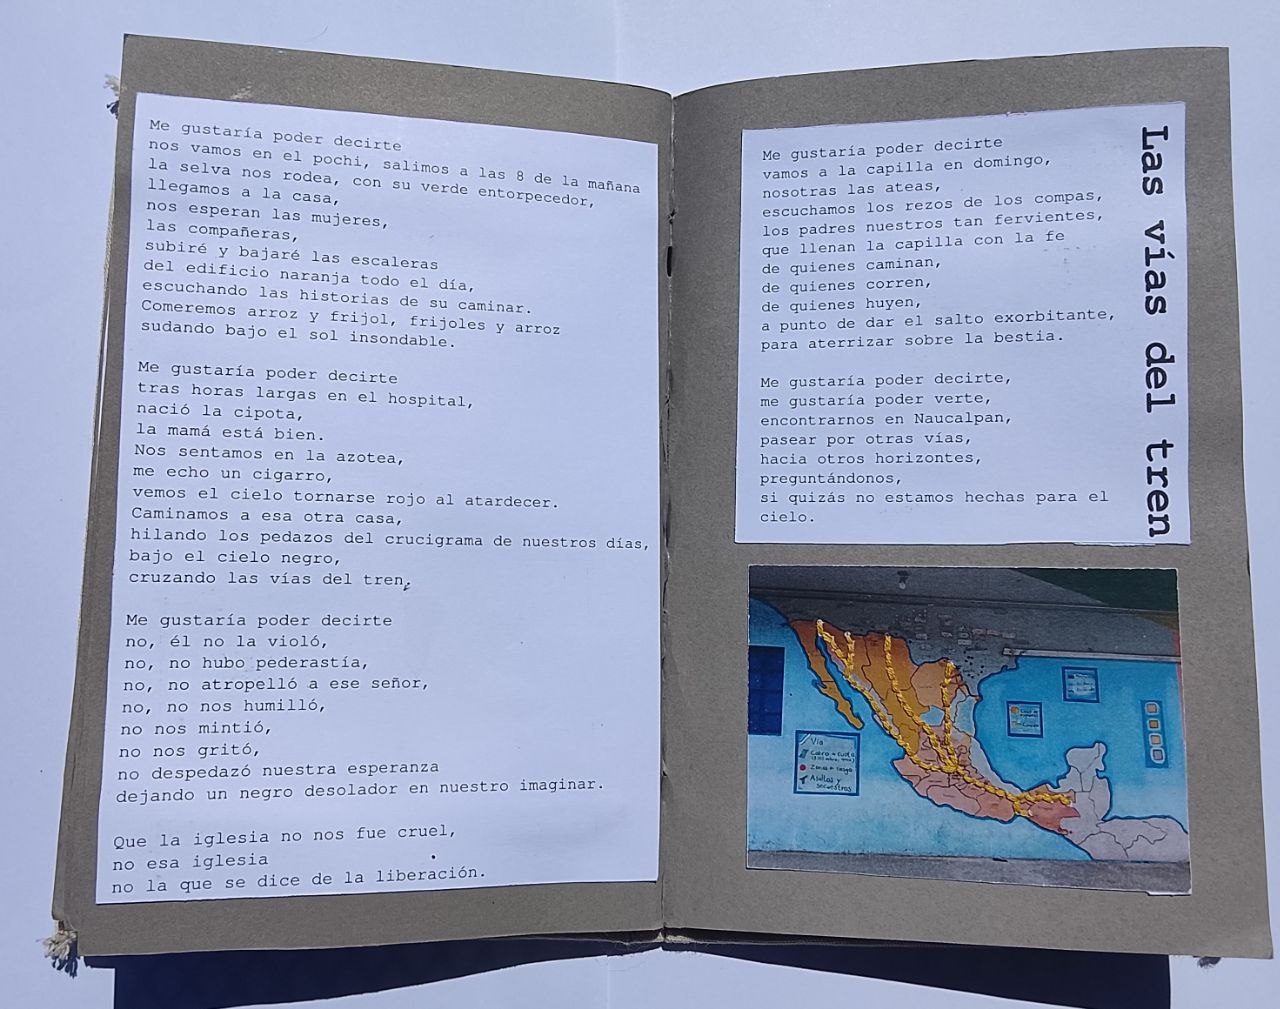 Me gustaría poder decirte
nos vamos en el pochi, salimos a las 8 de la mañana
la selva nos rodea, con su verde entorpecedor,
llegamos a la casa,
nos esperan las mujeres,
las compañeras,
subiré y bajaré las escaleras
del edificio naranja todo el día,
escuchando las historias de su caminar.
Comeremos arroz y frijol, frijoles y arroz
sudando bajo el sol insondable.
Me gustaría poder decirte
tras horas largas en el hospital,
nació la cipota,
la mamá está bien.
Nos sentamos en la azotea,
me echo un cigarro,
vemos el cielo tornarse rojo al atardecer.
Caminamos a esa otra casa,
hilando los pedazos del crucigrama de nuestros días,
bajo el cielo negro,
cruzando las vías del tren.
Me gustaría poder decirte
no, él no la violó,
no, no hubo pederastía,
no, no atropelló a ese señor,
no, no nos humilló,
no nos mintió,
no nos gritó,
no despedazó nuestra esperanza
dejando un negro desolador en nuestro imaginar.
Que la iglesia no nos fue cruel,
no esa iglesia
no la que se dice de la liberación.
Las vías del tren
Me gustaría poder decirte
vamos a la capilla en domingo,
nosotras las ateas,
escuchamos los rezos de los compas,
los padres nuestros tan fervientes,
que llenan la capilla con la fe
de quienes caminan,
de quienes corren,
de quienes huyen,
a punto de dar el salto exorbitante,
para aterrizar sobre la bestia.
Me gustaría poder decirte,
me gustaría poder verte,
encontrarnos en Naucalpan,
pasear por otras vías,
hacia otros horizontes,
preguntándonos,
si quizás no estamos hechas para el
cielo.
Vía
Asaltos y
secuestros